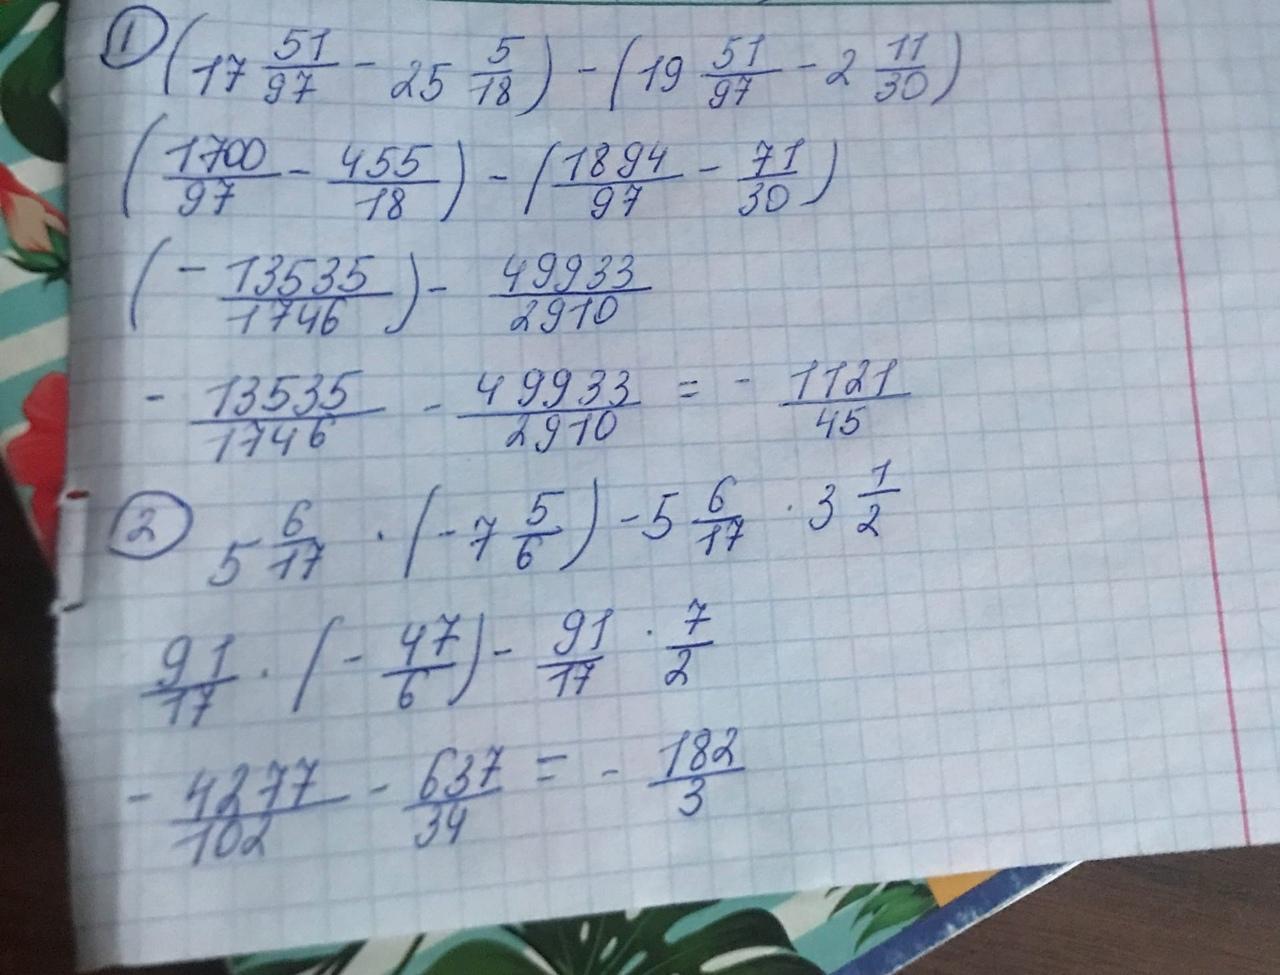 ① (17 51/97 - 25 5/18) - (19 51/97 - 2 11/30)
(1700/97 - 455/18) - (1894/97 - 71/30)
(- 13535/1746) - 49933/2910
- 13535/1746 - 49933/2910 = - 1121/45
② 5 6/17 · (-7 5/6) - 5 6/17 · 3 1/2
91/17 · (- 47/6) - 91/17 · 7/2
- 4277/102 - 637/34 = - 182/3